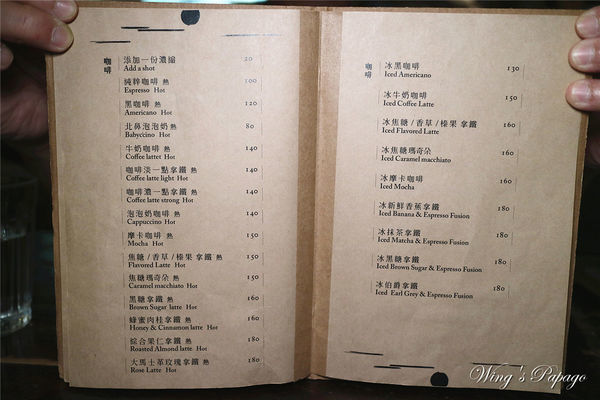 咖啡
添加一份濃縮 20
Add a shot
純粹咖啡 熱 100
Espresso Hot
黑咖啡 熱 120
Americano Hot
北鼻泡泡奶 熱 80
Babyccino Hot
牛奶咖啡 熱 140
Coffee lattet Hot
咖啡淡一點拿鐵 熱 140
Coffee latte light Hot
咖啡濃一點拿鐵 熱 140
Coffee latte strong Hot
泡泡奶咖啡 熱 140
Cappuccino Hot
摩卡咖啡 熱 150
Mocha Hot
焦糖/香草/榛果 拿鐵 熱 150
Flavored Latte Hot
焦糖瑪奇朵 熱 150
Caramel macchiato Hot
黑糖拿鐵 熱 160
Brown Sugar latte Hot
蜂蜜肉桂拿鐵 熱 160
Honey & Cinnamon latte Hot
綜合果仁拿鐵 熱 180
Roasted Almond latte Hot
大馬士革玫瑰拿鐵 熱 180
Rose Latte Hot
咖啡
冰黑咖啡 130
Iced Americano
冰牛奶咖啡 150
Iced Coffee Latte
冰焦糖/香草/榛果 拿鐵 160
Iced Flavored Latte
冰焦糖瑪奇朵 160
Iced Caramel macchiato
冰摩卡咖啡 160
Iced Mocha
冰新鮮香蕉拿鐵 180
Iced Banana & Espresso Fusion
冰抹茶拿鐵 180
Iced Matcha & Espresso Fusion
冰黑糖拿鐵 180
Iced Brown Sugar & Espresso Fusion
冰伯爵拿鐵 180
Iced Earl Grey & Espresso Fusion
Wing's Papago